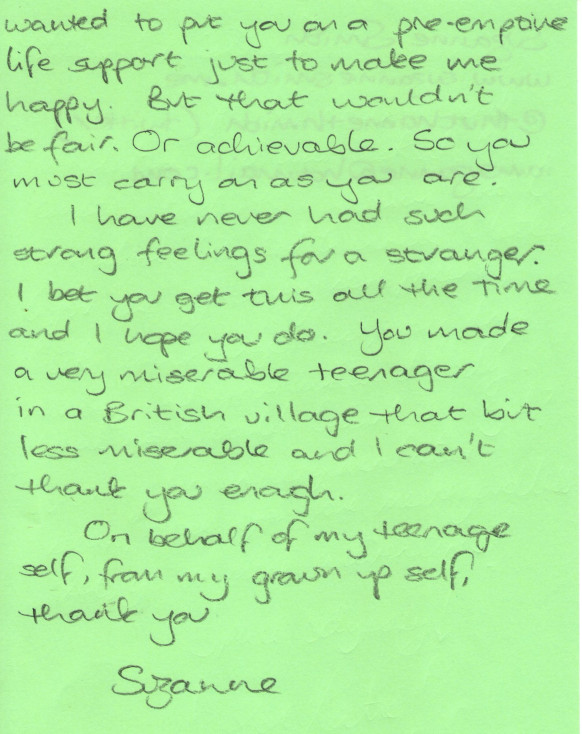 wanted to put you on a pre-emptive
life support just to make me
happy. But that wouldn't
be fair. Or achievable. So you
must carry on as you are.
I have never had such
strong feelings for a stranger.
I bet you get this all the time
and I hope you do. You made
a very miserable teenager
in a British village that bit
less miserable and I can't
thank you enough.
On behalf of my teenage
self, from my grown up self,
thank you
Suzanne